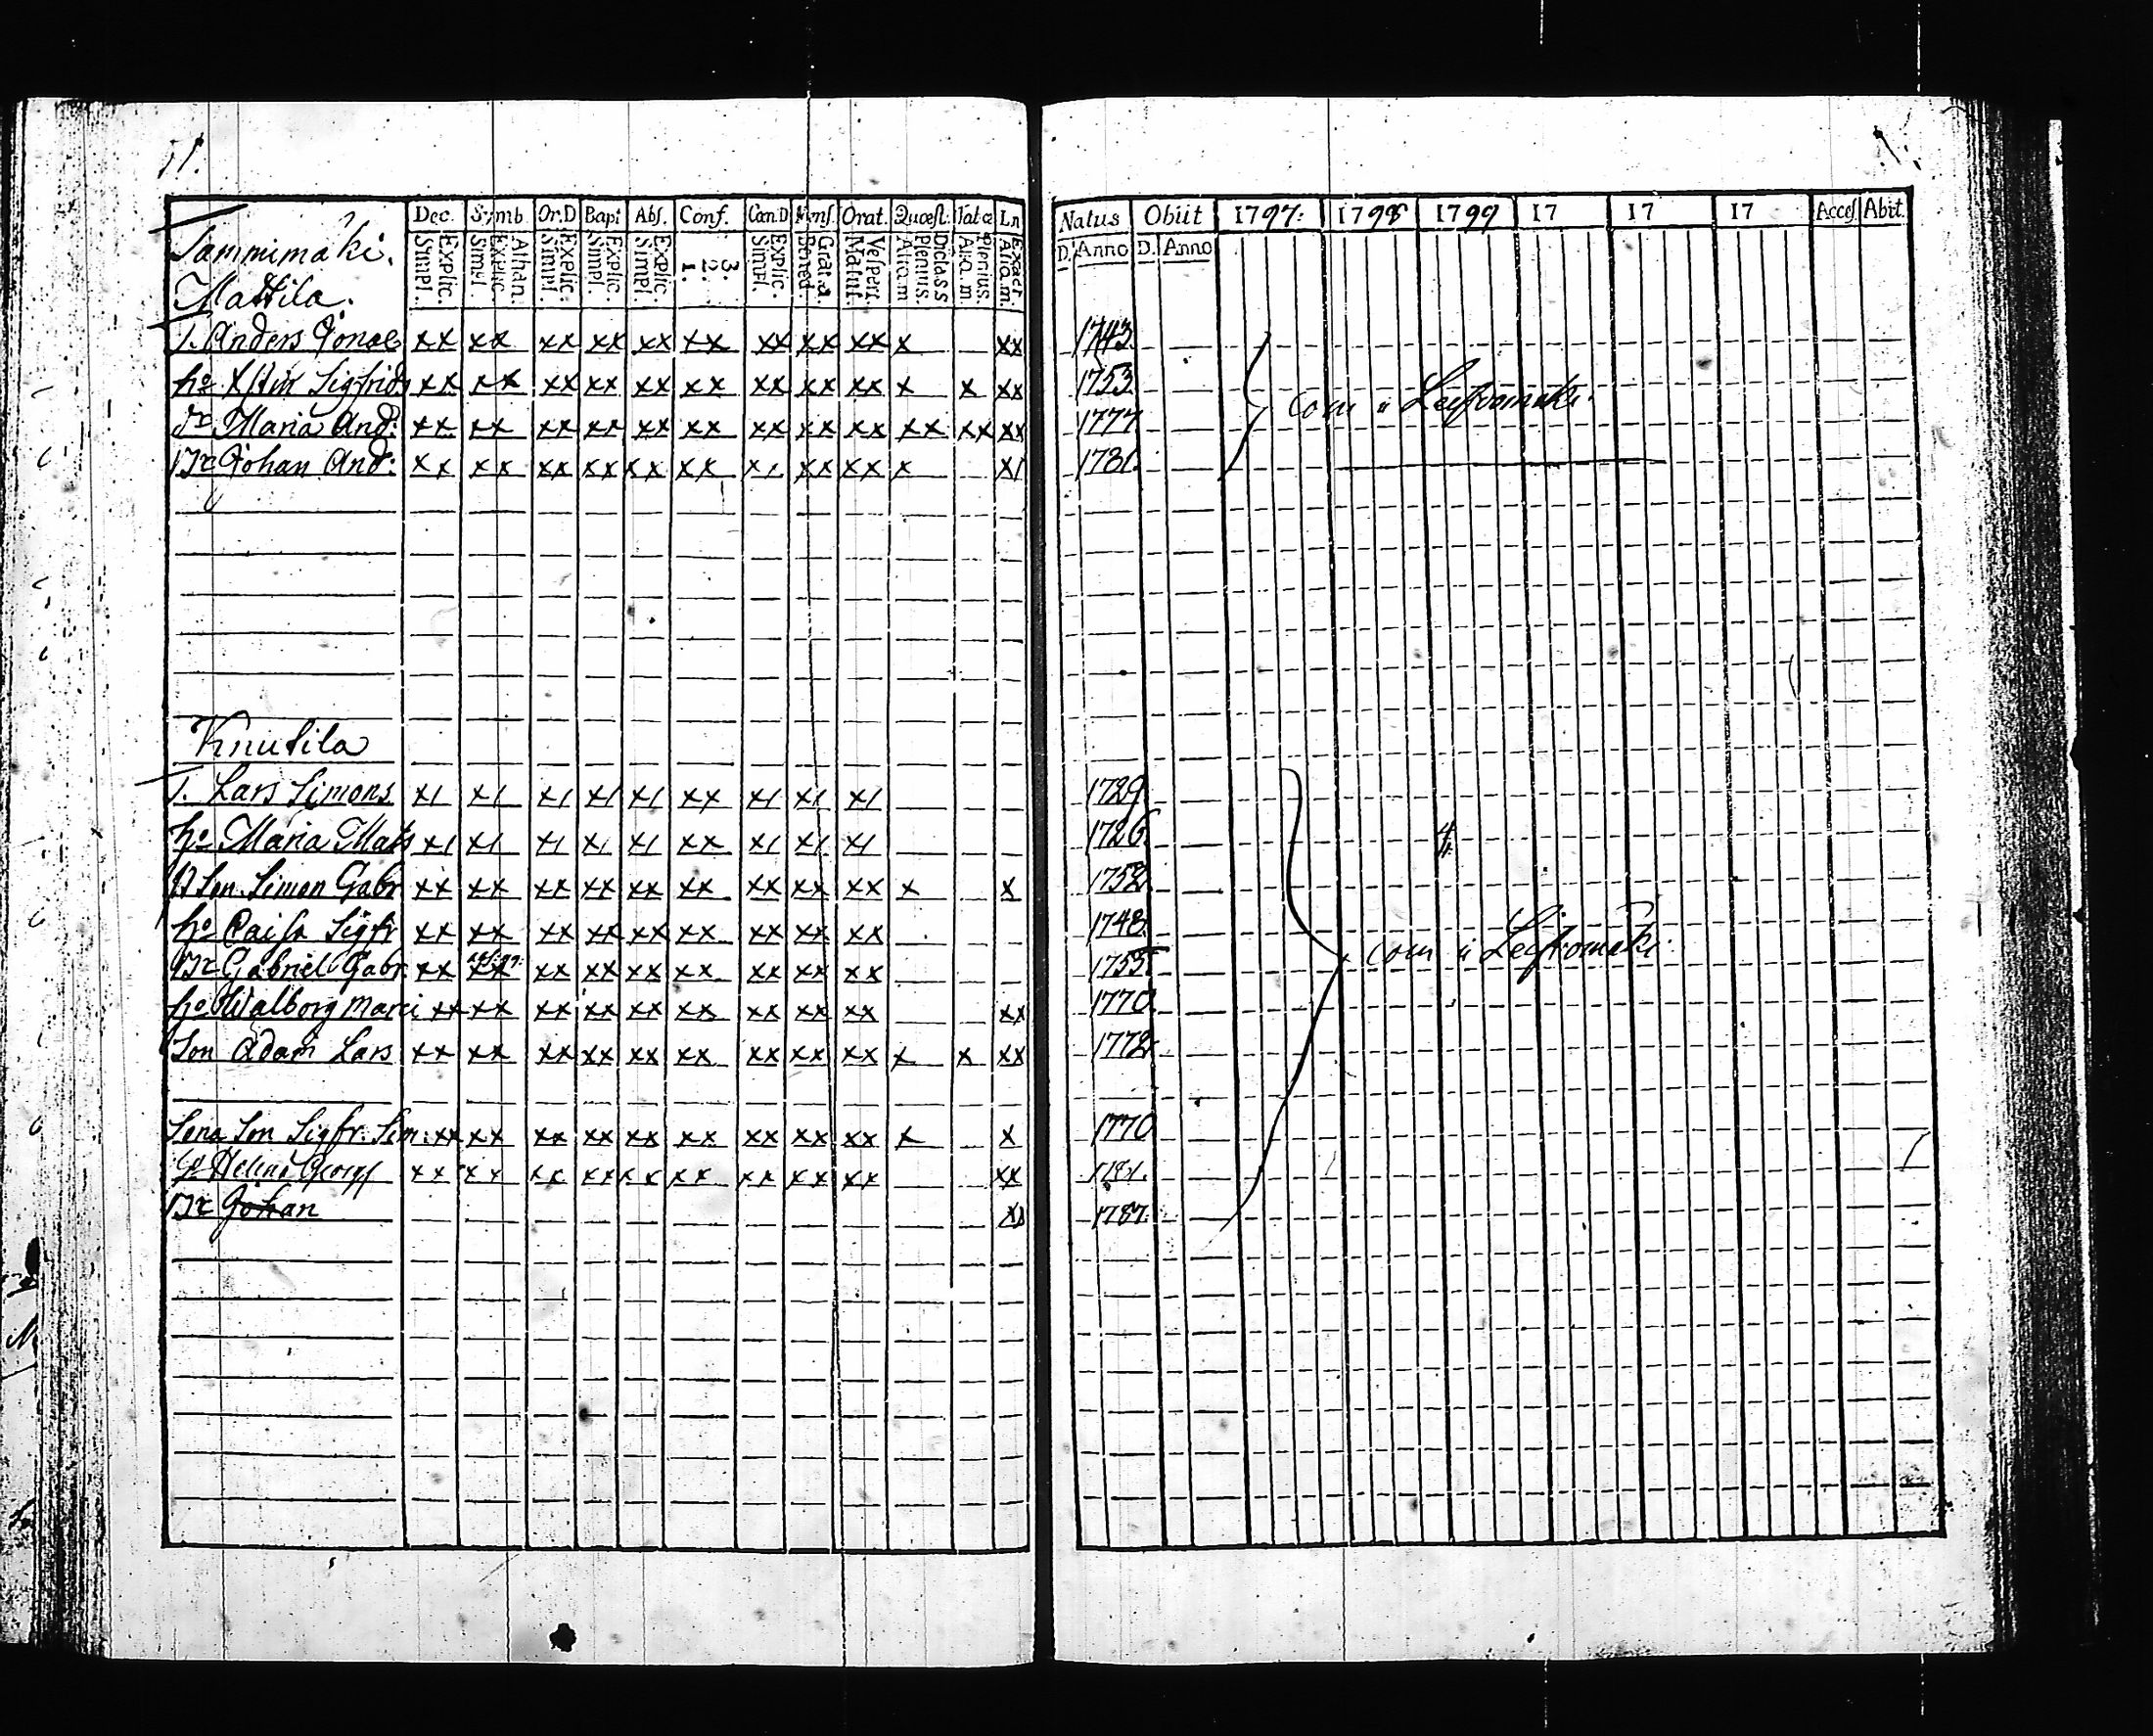 11.
Dec. Symb. Or.D Bapt Abs. Conf. Cœn.D Mens. Orat. Quæst. Tab.œ Ln
Explic. Simpl. Athan. Explic. Simpl. Explic. Simpl. Explic. Simpl. Explic. Simpl. 3. 2. 1. Explic. Simpl. Grat.a Bened. Vespert. Matut. Dictass Plenius. Aliq.m Plenius. Aliq.m. Exacr. Aliq.m.
Natus Obiit 1797. 1798 1799 17 17 17 Acces. Abit.
D. Anno D. Anno
Tammimäki.
Mattila.
T. Anders Jonae xx xx xx xx xx xx xx xx xx x xx 1743
ho Xstin Sigfrids xx xx xx xx xx xx xx xx xx x x xx 1753
Dr Maria And: xx xx xx xx xx xx xx xx xx xx xx xx 1777
Johan And: xx xx xx xx xx xx xx xx x 1781.
com
Knutila
T. Lars Simons 1729
ho Maria Mats 1726
Son Simon Gabr xx xx xx xx xx xx xx xx xx x x 1752
ho Caisa Sigfr xx xx xx xx xx xx xx xx xx 1748
Gabriel Gabr. xx xx xx xx xx xx xx xx xx 1755
ho Walborg Marci xx xx xx xx xx xx xx xx xx xx 1770
Son Adam Lars xx xx xx xx xx xx xx xx xx x x xx 1772
com
Son Sigfr. Sim: xx xx xx xx xx xx xx xx xx x x 1770
Helena xx xx xx xx xx xx xx xx xx xx
Johan 1787.